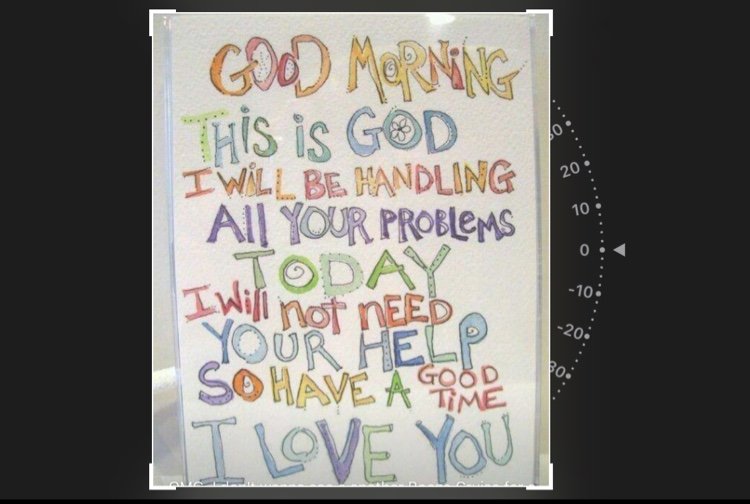 GOOD MORNING
THiS iS GOD
I WiLL BE HANDLING
All YOUR PROBLEMS
TODAY
I Will not NEED
YOUR HELP
SO HAVE A GOOD TiME
I LOVE YOU
30
20
10
0
-10
-20